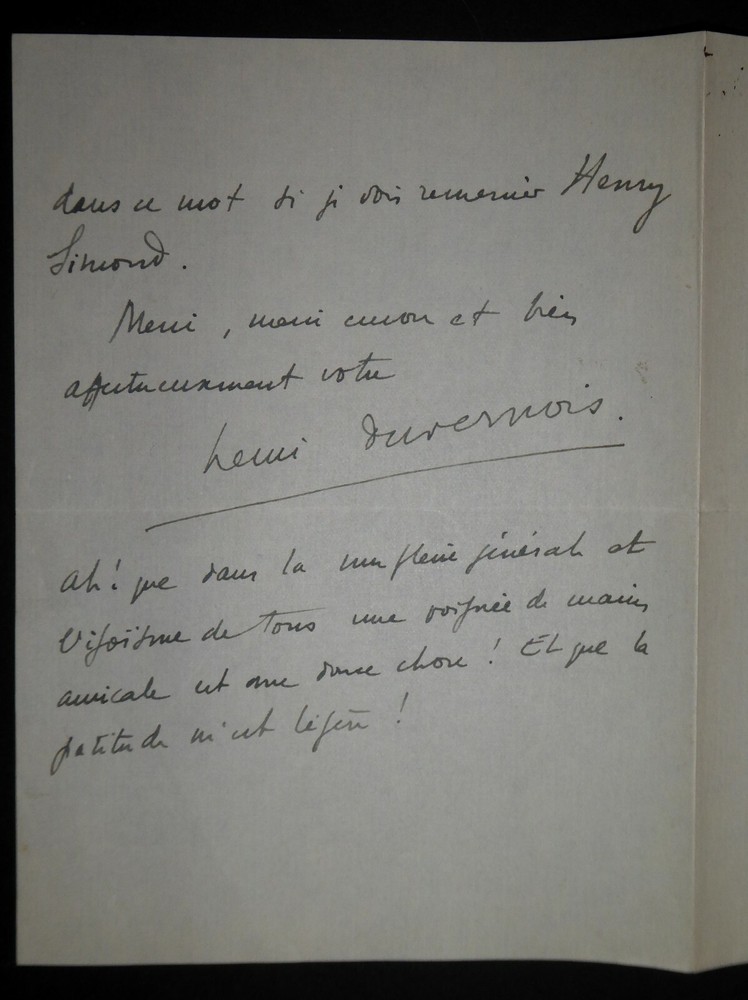 dans ce mot si je dois remercier Henry
Simond.
Merci, merci encore et bien
affectueusement votre
Henri Duvernois.
Ah! que dans la muflerie générale et
l'égoïsme de tous une poignée de mains
amicale est une douce chose! Et que la
gratitude m'est légère!